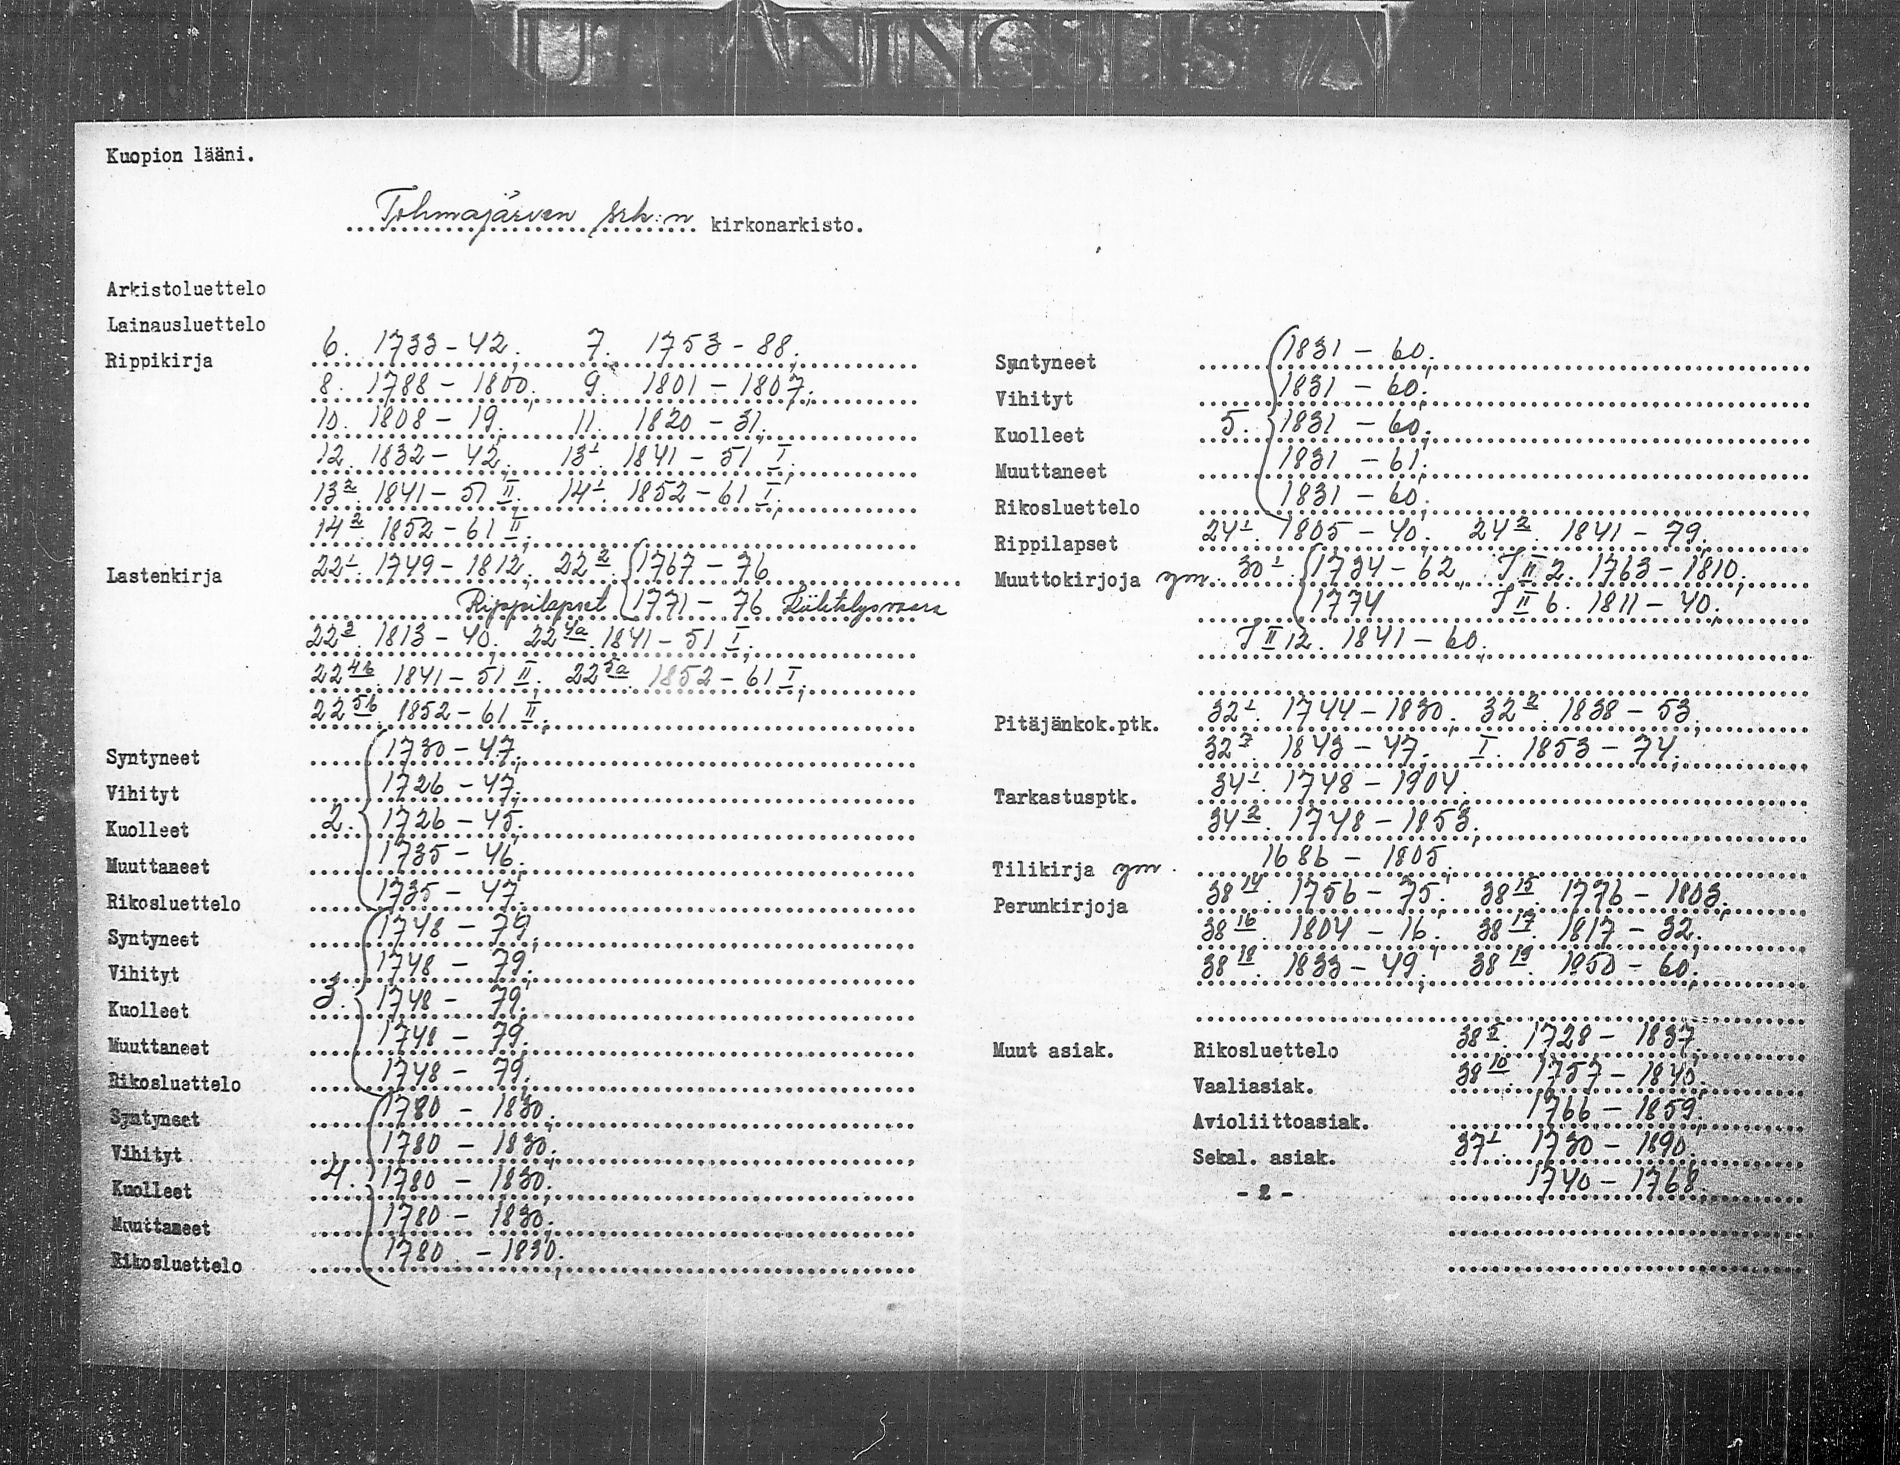 UTLÅNINGSLISTA
Kuopion lääni.
Tohmajärven srk:n kirkonarkisto.
Arkistoluettelo
Lainausluettelo
Rippikirja 6. 1733-42, 7. 1753-88,
8. 1788-1800, 9. 1801-1807,
10. 1808-19. 11. 1820-31,
12. 1832-42, 13 1. 1841-51 I,
13 2. 1841-51 II. 14 1. 1852-61 I,
14 2. 1852-61 II,
Lastenkirja 22 1. 1749-1812, 22 2. 1767-76
Rippilapset 1771-76 Kiihtelysvaara
22 3. 1813-40, 22 4a. 1841-51 I,
22 4b. 1841-51 II, 22 5a. 1852-61 I,
22 5b. 1852-61 II,
Syntyneet 1730-47,
Vihityt 1726-47,
Kuolleet 2. 1726-45,
Muuttaneet 1735-46,
Rikosluettelo 1735-47,
Syntyneet 1748-79,
Vihityt 1748-79,
Kuolleet 3. 1748-79,
Muuttaneet 1748-79,
Rikosluettelo 1748-79,
Syntyneet 1780-1830,
Vihityt 1780-1830,
Kuolleet 4. 1780-1830,
Muuttaneet 1780-1830,
Rikosluettelo 1780-1830,
Syntyneet 1831-60,
Vihityt 1831-60,
Kuolleet 5. 1831-60,
Muuttaneet 1831-61,
Rikosluettelo 1831-60,
Rippilapset 24 1. 1805-40, 24 2. 1841-79,
Muuttokirjoja ym. 30 1. 1734-62, I II 2. 1763-1810,
1774 I II 6. 1811-40,
I II 12. 1841-60,
Pitäjänkok.ptk. 32 1. 1744-1830, 32 2. 1838-53,
32 3. 1843-47, I. 1853-74,
Tarkastusptk. 34 1. 1748-1904.
34 2. 1748-1853,
Tilikirja ym. 1686-1805,
Perunkirjoja 38 14. 1756-75, 38 15. 1776-1803,
38 16. 1804-16. 38 17. 1817-32.
38 18. 1833-49, 38 19. 1850-60,
Muut asiak. Rikosluettelo 38 5. 1728-1837,
Vaaliasiak. 38 10. 1757-1840,
Avioliittoasiak. 1766-1859,
Sekal. asiak. 37 1. 1730-1890,
- 2 - 1740-1768,